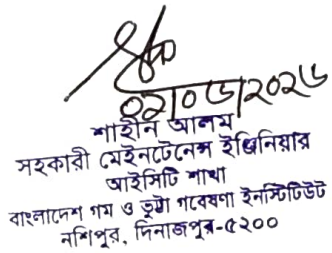 ০২/০৬/২০২৬
শাহীন আলম
সহকারী মেইনটেনেন্স ইঞ্জিনিয়ার
আইসিটি শাখা
বাংলাদেশ গম ও ভুট্টা গবেষণা ইনস্টিটিউট
নশিপুর, দিনাজপুর-৫২০০